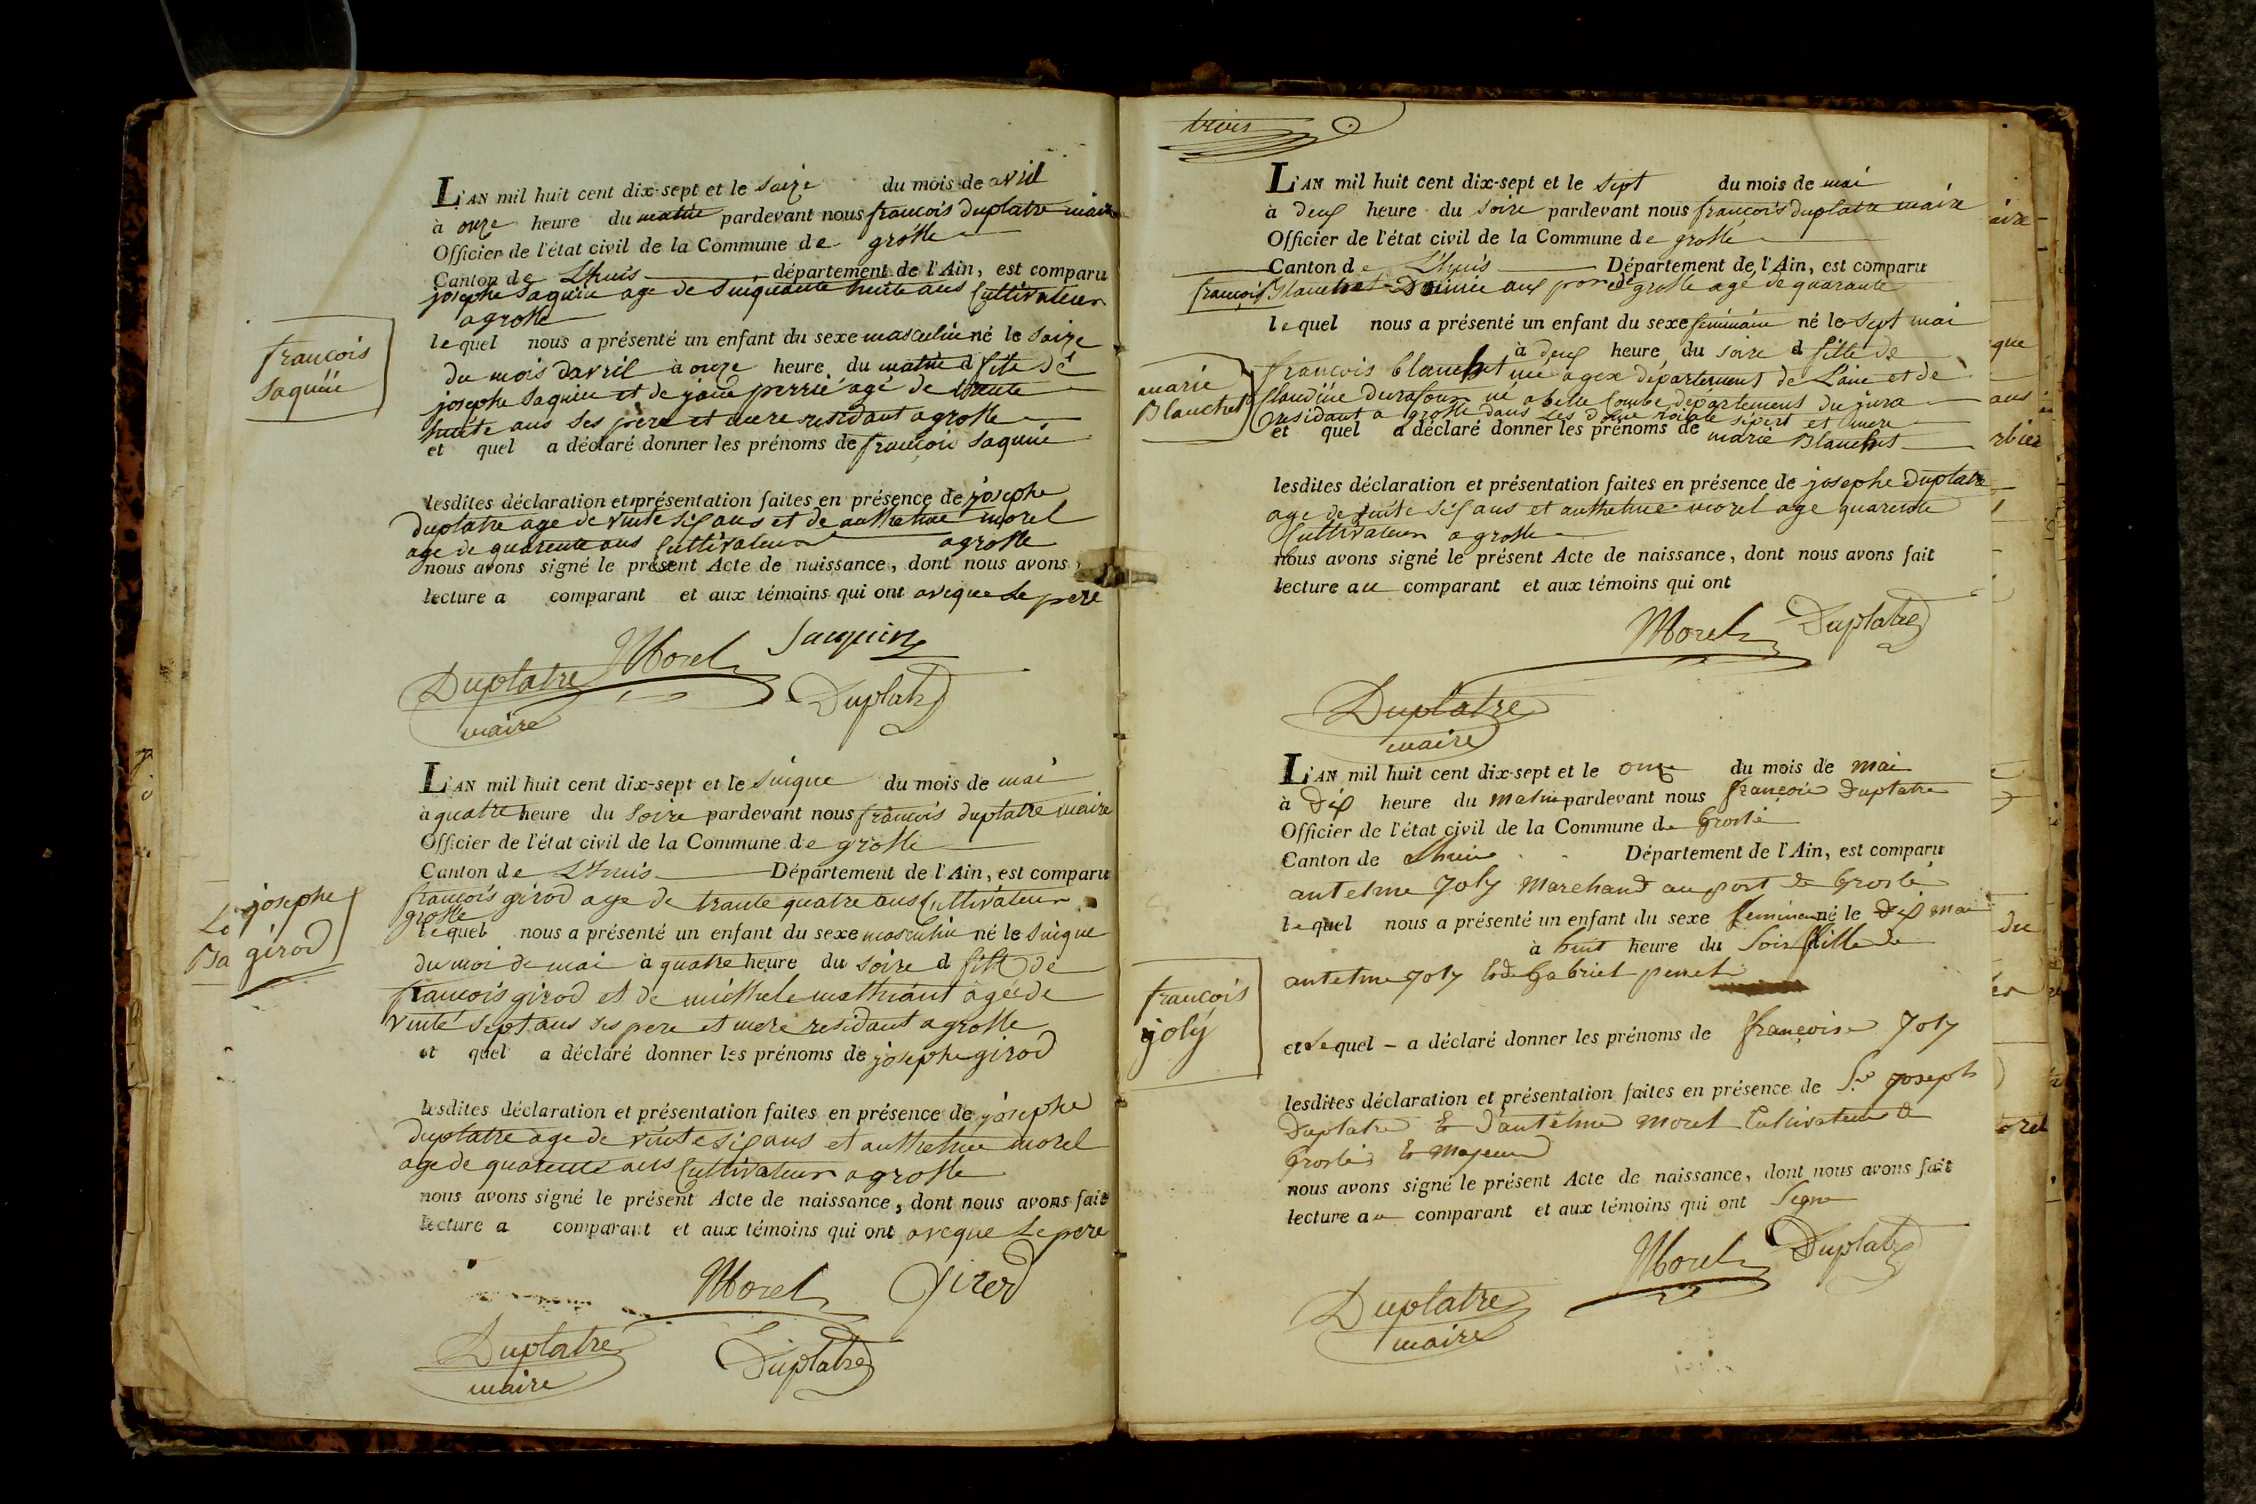 françois
saquin
L'AN mil huit cent dix-sept et le saize du mois de avril
à onze heure du matin pardevant nous françois duplatre maire
Officier de l'état civil de la Commune de grolle
Canton de Lhuis département de l'Ain, est comparu
josephe saquin age de sinquante huite ans Cultivateur
a grolle
lequel nous a présenté un enfant du sexe masculin né le saize
du mois davril à onze heure du matin d fils de
josephe saquin et de perrié agé de trente
huite ans ses père et mere residant a grolle
et quel a déclaré donner les prénoms de françois saquin
lesdites déclaration et présentation faites en présence de josephe
duplatre age de vinte sis ans et de anthelme morel
age de quarente ans Cultivateur a grolle
nous avons signé le présent Acte de naissance, dont nous avons
lecture a comparant et aux témoins qui ont aveque le pere
Morel Saquin
Duplatre
maire
Duplatre
josephe
girod
L'AN mil huit cent dix-sept et le sinque du mois de mai
à quatre heure du soire pardevant nous françois duplatre maire
Officier de l'état civil de la Commune de grolle
Canton de Lhuis Département de l'Ain, est comparu
françois girod age de trante quatre ans Cultivateur
grolle
lequel nous a présenté un enfant du sexe masculin né le sinque
du moi de mai à quatre heure du soire d fils de
françois girod et de agée de
vinté sept ans ses pere et mere residant a grolle
et quel a déclaré donner les prénoms de josephe girod
lesdites déclaration et présentation faites en présence de josephe
duplatre age de vinte sis ans et anthelme morel
age de quarente ans Cultivateur a grolle
nous avons signé le présent Acte de naissance, dont nous avons fait
lecture a comparant et aux témoins qui ont aveque le pere
Morel Girod
Duplatre
maire
Duplatre
trois
L'AN mil huit cent dix-sept et le sept du mois de mai
à deux heure du soire pardevant nous françois duplatre maire
Officier de l'état civil de la Commune de grolle
Canton de Lhuis Département de l'Ain, est comparu
françois Blanchet de grolle agé de quarante
lequel nous a présenté un enfant du sexe feminain né le sept mai
à deux heure du soire d fille de
marie
Blanchet
françois blanchet né département de Laine et de
Claudine né a belle Combe département du jura
residant a grolle dans les et mere
et quel a déclaré donner les prénoms de marie Blanchet
lesdites déclaration et présentation faites en présence de josephe duplatre
age de vinte sis ans et anthelme morel age quarente
Cultivateur a grolle
nous avons signé le présent Acte de naissance, dont nous avons fait
lecture au comparant et aux témoins qui ont
Morel Duplatre
Duplatre
maire
L'AN mil huit cent dix-sept et le onze du mois de mai
à dix heure du matin pardevant nous françois Duplatre
Officier de l'état civil de la Commune de Groslé
Canton de Lhuis Département de l'Ain, est comparu
antelme Joly Marchand au port de Groslé
lequel nous a présenté un enfant du sexe feminin né le dix mai
à huit heure du soir fille de
antelme Joly et de Gabriel perret
françois
joly
et lequel a déclaré donner les prénoms de françoise Joly
lesdites déclaration et présentation faites en présence de Sr Joseph
Duplatre et d'antelme Morel Cultivateur a
Groslé et Majeur
nous avons signé le présent Acte de naissance, dont nous avons fait
lecture au comparant et aux témoins qui ont signé
Morel Duplatre
Duplatre
maire